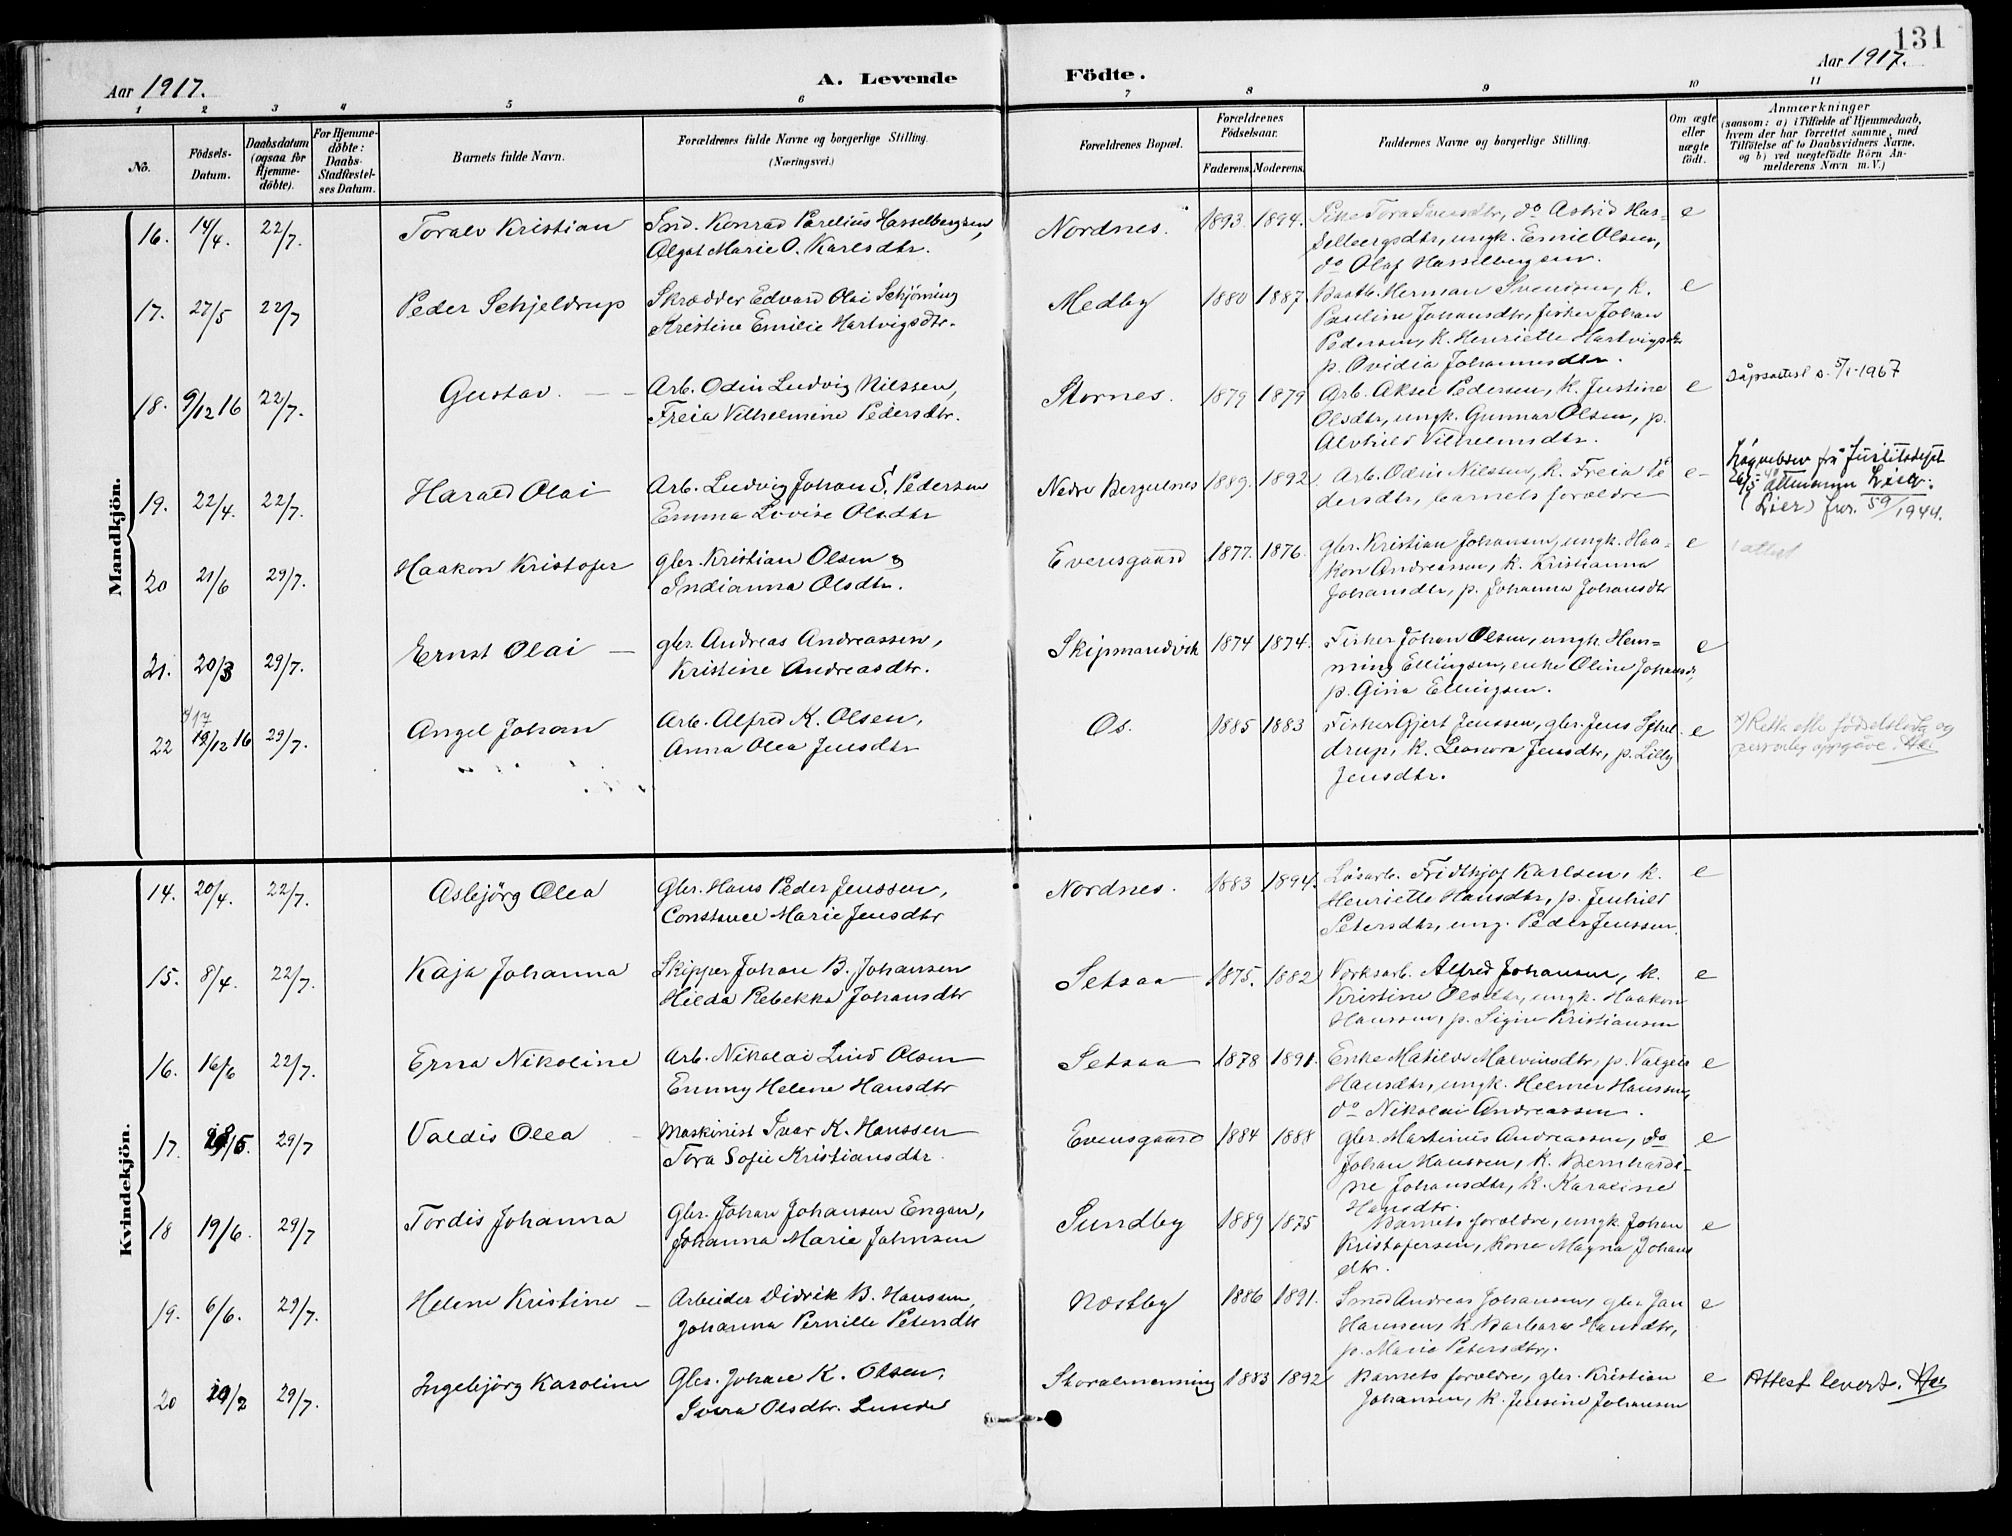 131
Aar 1917.
A. Levende
Födte.
Aar 1917.
1 2 3 4 5 6 7 8 9 10 11
No.
Födsels-Datum.
Daabsdatum (ogsaa for Hjemme-döbte).
For Hjemme-döbte: Daabs-Stadfæstel-ses Datum.
Barnets fulde Navn.
Forældrenes fulde Navne og borgerlige Stilling. (Næringsvei.)
Forældrenes Bopæl.
Forældrenes Födselsaar.
Faderens. Moderens.
Faddernes Navne og borgerlige Stilling.
Om ægte eller uægte födt.
Anmærkninger
(saasom: a) i Tilfælde af Hjemmedaab,
hvem der har forrettet samme, med
Tilföielse af to Daabsvidners Navne.
og b) ved uægtefödte Börn An-
melderens Navn m. V.)
Mandkjön.
16. 14/4. 22/7. Toralv Kristian
Ind. Konrad Parelius Hasselbergsen,
Algot Marie O. Karlsdtr.
Nordnes. 1893. 1894.
Pike Tora Svensdtr, do Astrid Has-
selbergsdtr, ungk. Emil Olsen,
do Olaf Hasselbergsen.
e
17. 27/5 22/7 Peder Schjeldrup
Skrædder Edvard Olai Schjöning
Kristine Emilie Hartvigsdtr.
Medby 1880 1887
Baatb. Herman Svendsen, k.
Pauline Johansdtr, fisker Johan
Pedersen, k. Henriette Hartvigsdtr
p. Ovidia Johannesdtr.
e
18. 9/12 16 22/7. Gustav.
Arb. Odin Ludvig Nilssen,
Freia Vilhelmine Pedersdtr.
Stornes. 1879 1879
Arb. Aksel Pedersen, k. Justine
Olsdtr, ungk. Gunnar Olsen, p.
Alvhild Vilhelmsdtr.
e
Dåpsattest s. 5/1-1967
19. 22/4. 22/7. Harald Olai
Arb. Ludvig Johan S. Pedersen
Emma Lovise Olsdtr
Nedre Bergulnes 1889. 1892
Arb. Odin Nilssen, k. Freia Pe
dersdtr, barnets forældre
e
frå Justitsdept
(Lier) 59/1944.
20 21/6 29/7. Haakon Kristofer
gbr. Kristian Olsen &
Indianna Olsdtr.
Evensgaard 1877. 1876.
gbr. Kristian Johansen, ungk. Haa-
kon Andreassen, k. Kristianna
Johansdtr, p. Johanna Johansdtr
e
attest
21. 20/3 29/7. Ernst Olai
gbr. Andreas Andreassen,
Kristine Andreasdtr.
Skipmandvik 1874 1874.
Fisker Johan Olsen, ungk. Hem-
ming Ellingsen, enke Oline Johansdtr,
p. Gina Ellingsen.
e
x) 17
22 19/12 16 29/7. Angel Johan
Arb. Alfred K. Olsen,
Anna Olea Jensdtr
Os. 1885 1883
Fisker Gjert Jenssen, gbr. Jens Schel-
drup, k. Leonora Jensdtr, p. Lilly
Jensdtr.
e
x) Retta etter födselslista og
personleg oppgåve.
Kvindekjön.
14. 20/4. 22/7. Asbjörg Olea
Gbr. Hans Peder Jenssen,
Constance Marie Jensdtr
Nordnes. 1883 1894.
Lösarb. Fridthjof Karlsen, k.
Henriette Hansdtr, p. Jenhild
Petersdtr, ung. Peder Jenssen.
e
15. 8/4. 22/7. Kaja Johanna
Skipper Johan B. Johansen
Hilda Rebekka Johansdtr
Setsaa 1875. 1882
Verksarb. Alfred Johansen, k.
Kristine Olsdtr, ungk. Haakon
Hanssen, p. Signe Kristiansen
e
16. 16/6 22/7. Erna Nikoline
Arb. Nikolai Lind Olsen
Emmy Helene Hansdtr
Setsaa 1878 1891.
Enke Matilde Malvinsdtr, p. Valgerd
Hansdtr, ungk. Helmer Hanssen,
do Nikolai Andreassen.
e
17. /5. 29/7 Valdis Olea
Maskinist Ivar K. Hanssen
Tora Sofie Kristiansdtr.
Evensgaard 1884 1888
gbr. Martinus Andreassen, do
Johan Hanssen, k. Bernhardi-
ne Johansdtr, k. Karoline
Hansdtr.
e
18 19/6. 29/7 Tordis Johanna
Gbr. Johan Johansen Engan,
Johanna Marie Johnsen
Sundby 1889 1875
Barnets forældre, ungk. Johan
Kristofersen, kone Magna Johans
dtr.
e
19. 6/6. 29/7. Helene Kristine
Arbeider Didrik B. Hanssen,
Johanna Pernille Petersdtr
Næstby 1886 1891.
Smed Andreas Johansen, gbr. Jan
Hanssen, k. Barbara Hansdtr,
p. Marie Petersdtr.
e
20 /2 29/7. Ingebjörg Karoline
Gbr. Johan K. Olsen,
Ivera Olsdtr. Lunde
Storalmenning 1883 1892
Barnets forældre, gbr. Kristian
Johansen, k. Jensine Johansen
e
Attest levert.